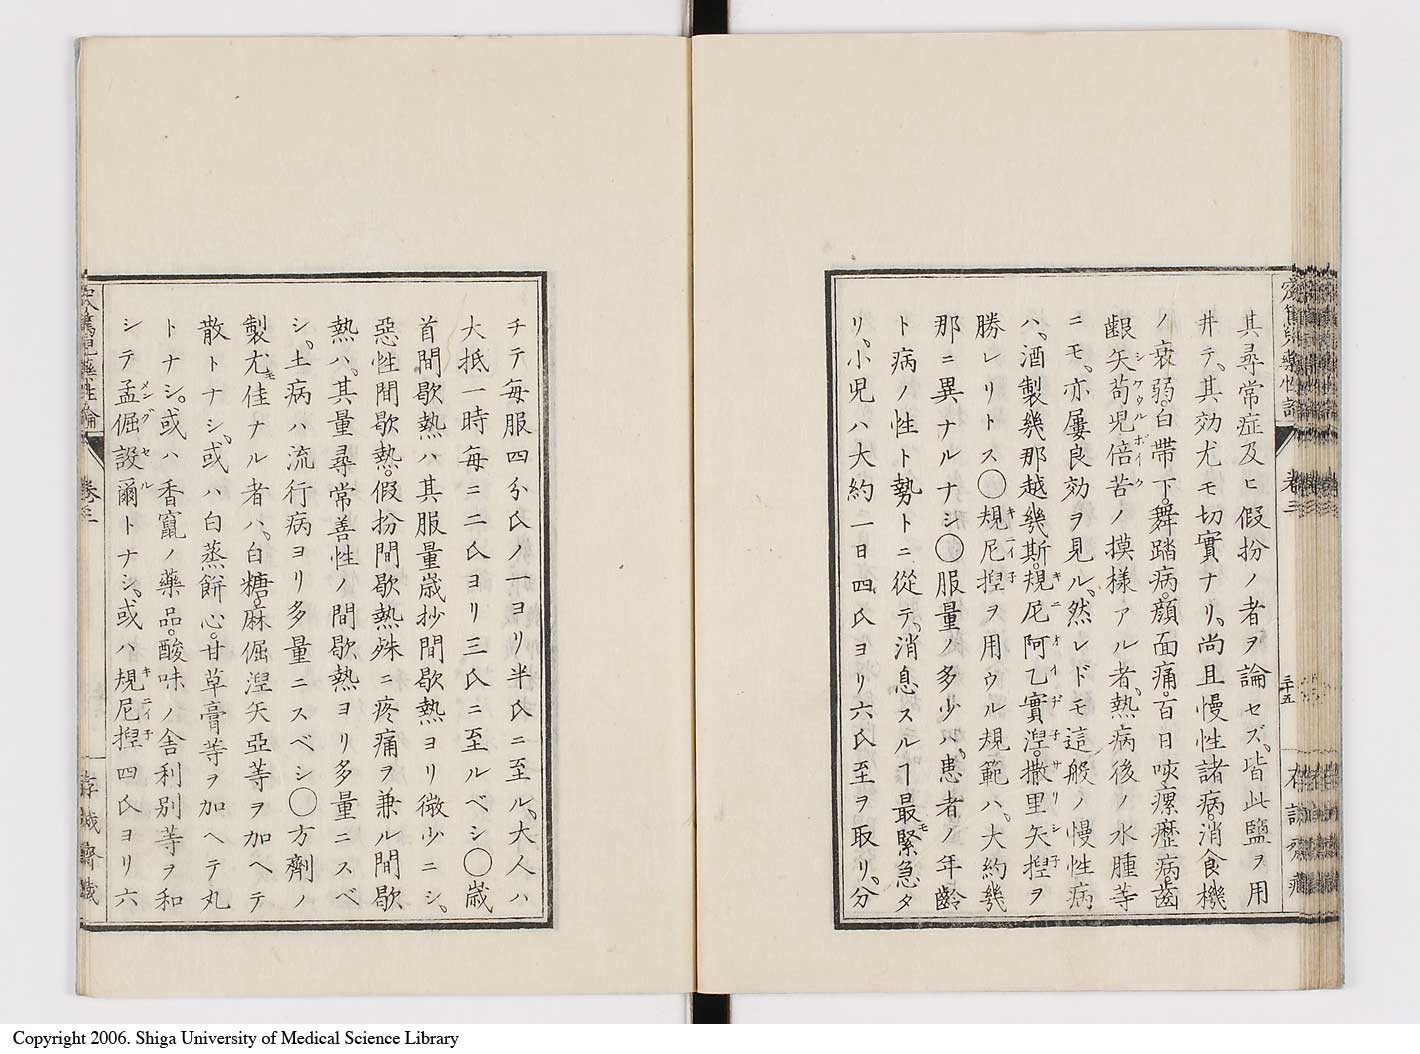 其尋常症及ヒ假扮ノ者ヲ論セズ、皆此鹽ヲ用
井テ、其効尤モ切實ナリ、尚且慢性諸病。消食機
ノ衰弱。白帶下。舞踏病。顔面痛。百日咳瘰癧病。齒
齦矢苟兒倍苦ノ摸樣アル者、熱病後ノ水腫等
シケウルボイク
ニモ、亦屢良効ヲ見ル、然レドモ這般ノ慢性病
ハ、酒製幾那越幾斯。規尼阿乙實涅。撒里矢𢰸ヲ
キニオイヂ子サリシ子
勝レリトス〇規尼𢰸ヲ用ウル規範ハ、大約幾
キニイ子
那ニ異ナルナシ〇服量ノ多少ハ、患者ノ年齡
ト病ノ性ト勢トニ從テ、消息スルヿ最モ緊急タ
リ、小兒ハ大約一日四氏ヨリ六氏至ヲ取リ、分
卷三
三十五
チテ毎服四分氏ノ一ヨリ半氏ニ至ル、大人ハ
大抵一時毎ニ二氏ヨリ三氏ニ至ルベシ〇歳
首間歇熱ハ其服量歳抄間歇熱ヨリ微少ニシ、
惡性間歇熱。假扮間歇熱殊ニ疼痛ヲ兼ル間歇
熱ハ、其量尋常善性ノ間歇熱ヨリ多量ニスベ
シ、土病ハ流行病ヨリ多量ニスベシ〇方劑ノ
製尤モ佳ナル者ハ、白糖。麻倔涅矢亞等ヲ加ヘテ
散トナシ、或ハ白蒸餅心。甘草膏等ヲ加ヘテ丸
トナシ。或ハ香竄ノ藥品。酸味ノ舎利別等ヲ和
シテ孟倔設爾トナシ、或ハ規尼𢰸四氏ヨリ六
メングセル
キニイ子
卷三
存誠齋藏
Copyright 2006. Shiga University of Medical Science Library